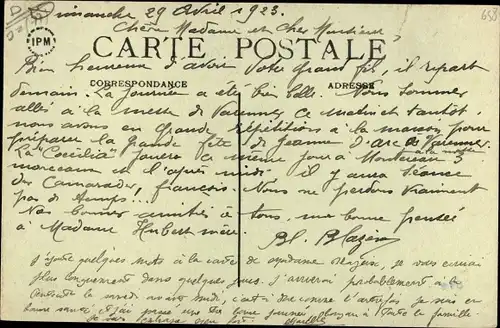 Dimanche 29 Avril 1923.
653
Chère Madame et cher Monsieur
IPM
CARTE POSTALE
Bien heureux d'avoir votre grand fils, il repart
CORRESPONDANCE
ADRESSE
demain. La journée a été bien belle. Nous sommes
allés à la messe de Varennes ce matin et tantôt
nous avons eu grande répétition à la maison pour
préparer la grande fête de Jeanne d'arc
La "Cecilia" jouera le même jour à Montereau 3
morceaux et l'après midi il y aura séance
des Camarades français. Nous ne perdons vraiment
pas de temps...
Nos bonnes amitiés à tous, une bonne pensée
à Madame Hubert mère.
Bl. Blazeix
J'ajoute quelques mots à la carte de Madame Blazeix, je vous écrirai
plus longuement dans quelques jours. J'arriverai probablement à la
le mardi avant midi, c'est-à-dire je suis en
bonne santé, et j'ai passé une très bonne journée à toute la famille